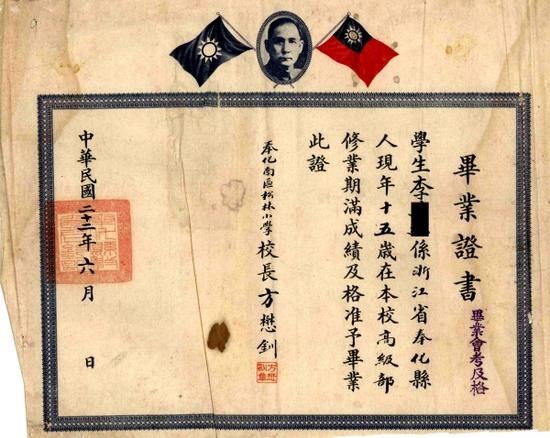 畢業證書
畢業會考及格
學生李 係浙江省奉化縣
人現年十五歲在本校高級部
修業期滿成績及格准予畢業
此證
奉化南區松林小學校長方懋釧
中華民國二十二年六月 日